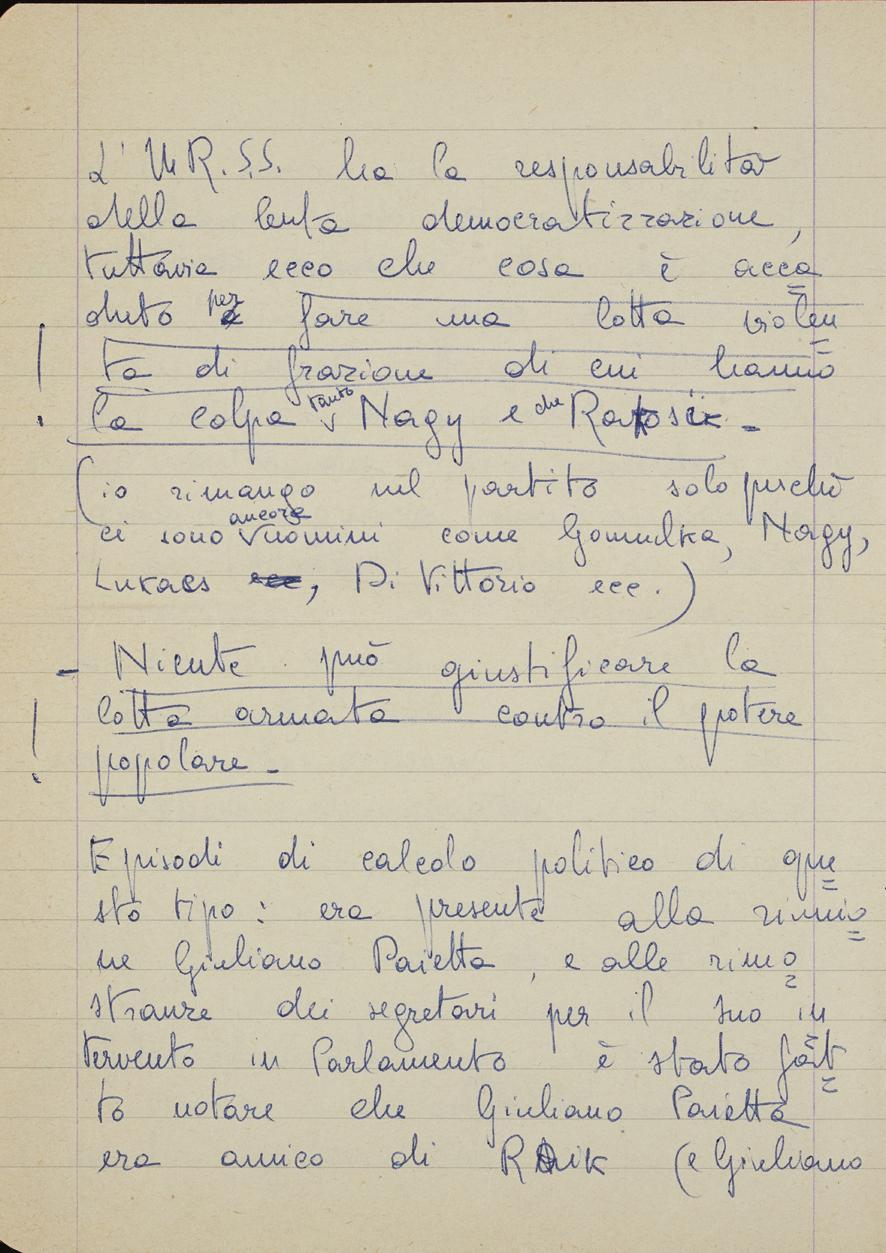 L'U.R.S.S. ha la responsabilità
della lenta democratizzazione,
tuttavia ecco che cosa è acca
duto per fare una lotta violen
ta di frazione di cui hanno
la colpa tanto Nagy e che Rakosik -
(io rimango nel partito solo perchè
ci sono ancora uomini come Gomulka, Nagy,
Lukacs ecc, Di Vittorio ecc.)
- Niente può giustificare la
lotta armata contro il potere
popolare -
Episodi di calcolo politico di que
sto tipo: era presente alla riunio
ne Giuliano Paietta, e alle rimo
stranze dei segretari per il suo in
tervento in Parlamento è stato fat
to notare che Giuliano Paietta
era amico di Raik (e Giuliano